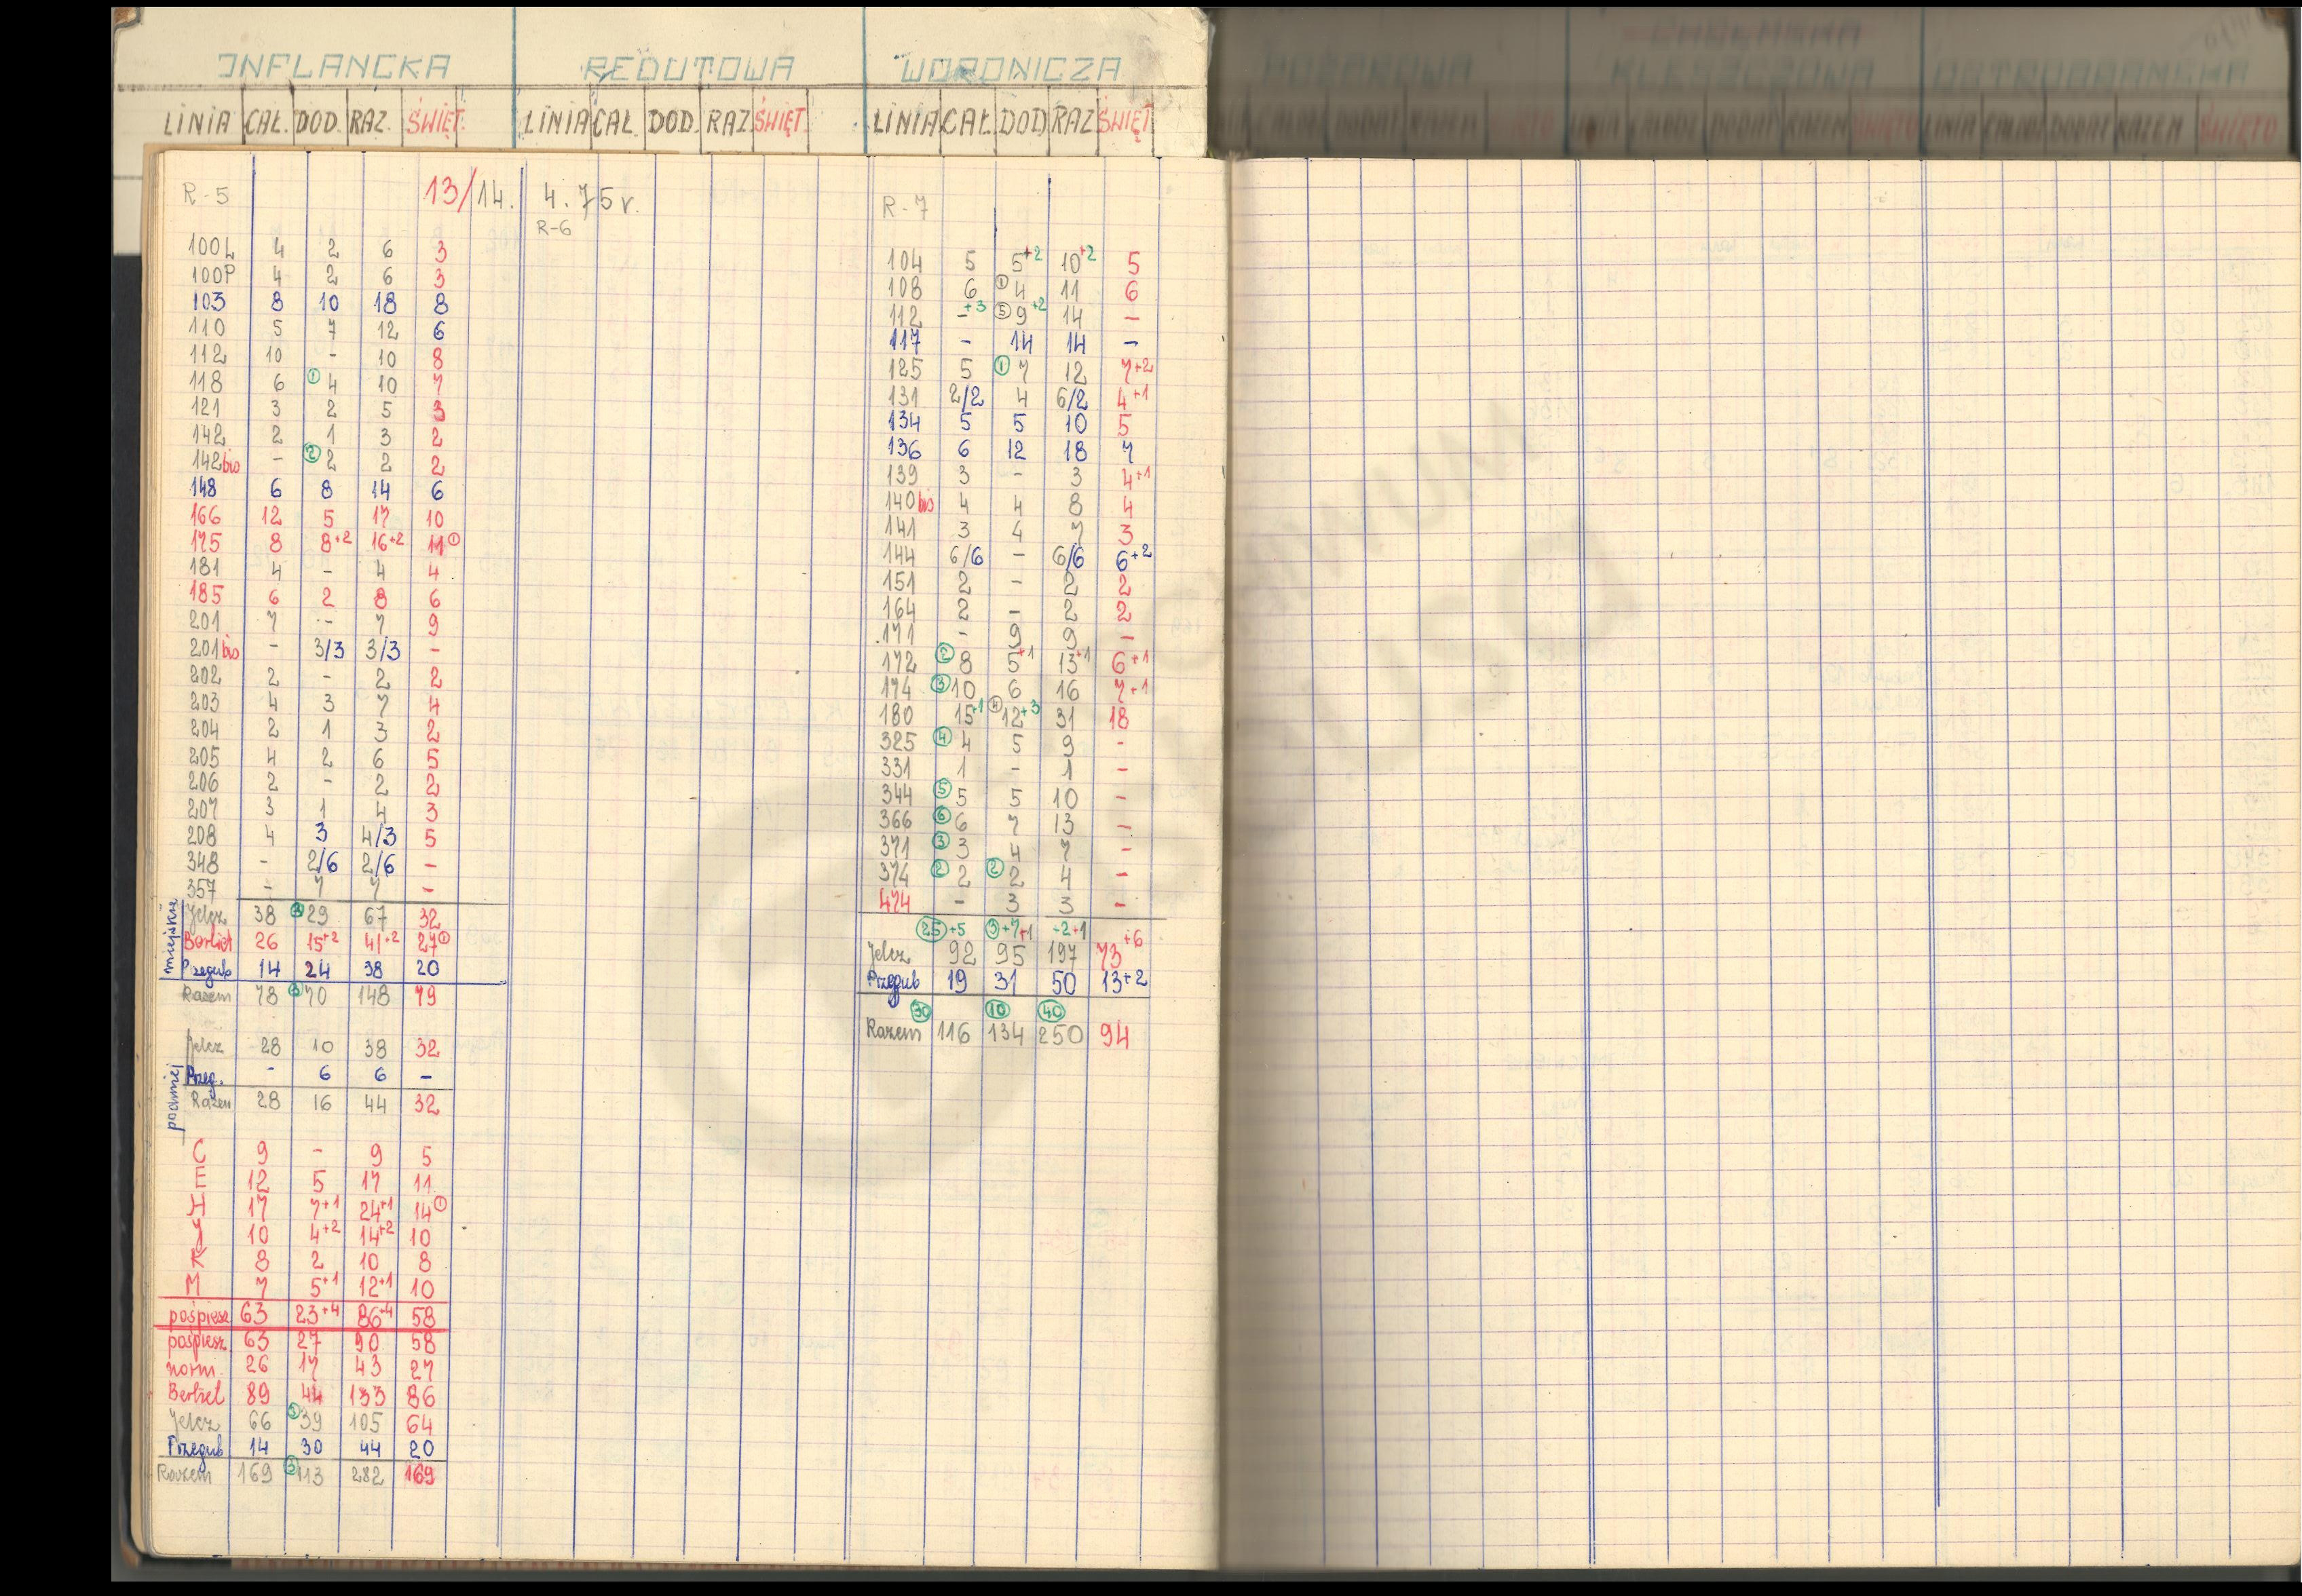 INFLANCKA REDUTOWA WORONICZA
LINIA CAŁ. DOD. RAZ. ŚWIĘT. LINIA CAŁ. DOD. RAZ ŚWIĘT. LINIA CAŁ DOD RAZ ŚWIĘT
R-5 13/14. 4.75 r.
R-6
100L 4 2 6 3
100P 4 2 6 3
103 8 10 18 8
110 5 7 12 6
112 10 - 10 8
118 6 ① 4 10 7
121 3 2 5 3
142 2 1 3 2
142 bis - ② 2 2 2
148 6 8 14 6
166 12 5 17 10
175 8 8+2 16+2 11 ①
181 4 - 4 4
185 6 2 8 6
201 7 - 7 9
201 bis - 3/3 3/3 -
202 2 - 2 2
203 4 3 7 4
204 2 1 3 2
205 4 2 6 5
206 2 - 2 2
207 3 1 4 3
208 4 3 4/3 5
348 - 2/6 2/6 -
357 - 7 7 -
miejskie
Jelcz 38 ③ 29 67 32
Berliet 26 15+2 41+2 27 ①
Przegub 14 24 38 20
Razem 78 ③ 70 148 79
podmiej
Jelcz 28 10 38 32
Przeg. - 6 6 -
Razem 28 16 44 32
C 9 - 9 5
E 12 5 17 11
H 17 7+1 24+1 14 ①
J 10 4+2 14+2 10
K 8 2 10 8
M 7 5+1 12+1 10
pośpiesz 63 23+4 86+4 58
pośpiesz. 63 27 90 58
norm. 26 17 43 27
Berliet 89 44 133 86
Jelcz 66 ③ 39 105 64
Przegub 14 30 44 20
Razem 169 ③ 113 282 169
R-7
104 5 5+2 10+2 5
108 6 ① 4 11 6
112 -+3 ⑤ 9+2 14 -
117 - 14 14 -
125 5 ① 7 12 7+2
131 2/2 4 6/2 4+1
134 5 5 10 5
136 6 12 18 7
139 3 - 3 4+1
140 bis 4 4 8 4
141 3 4 7 3
144 6/6 - 6/6 6+2
151 2 - 2 2
164 2 - 2 2
171 - 9 9 -
172 ② 8 5+1 13+1 6+1
174 ③ 10 6 16 7+1
180 15+1 ④ 12+3 31 18
325 ④ 4 5 9 -
331 1 - 1 -
344 ⑤ 5 5 10 -
366 ⑥ 6 7 13 -
371 ③ 3 4 7 -
374 ② 2 ② 2 4 -
474 - 3 3 -
㉕+5 ③+7+1 +2+1
Jelcz 92 95 197 73+6
Przegub 19 31 50 13+2
㉚ ⑩ ㊵
Razem 116 134 250 94